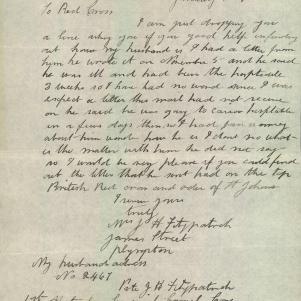 To Red Cross
I am just dropping you
a line asking you if you could help finding
out how my husband is I had a letter from
him he wrote it on November 5th and he said
he was ill and had been the hospitable
3 weeks so I have had no word since I was
expect a letter this mail but not receive
on he said he was going to Cairo hospitable
in a few days then so I had for a
about him wont you be so I dont no what
is the matter with him he did not say
so I would be very please if you could find
out the letter that he sent had on the top
British Red cross and order of St Johns
I am yours
truly
Mrs J H Fitzpatrick
James Street
Plympton
My husband adress
No 2467
Pte J. H. Fitzpatrick